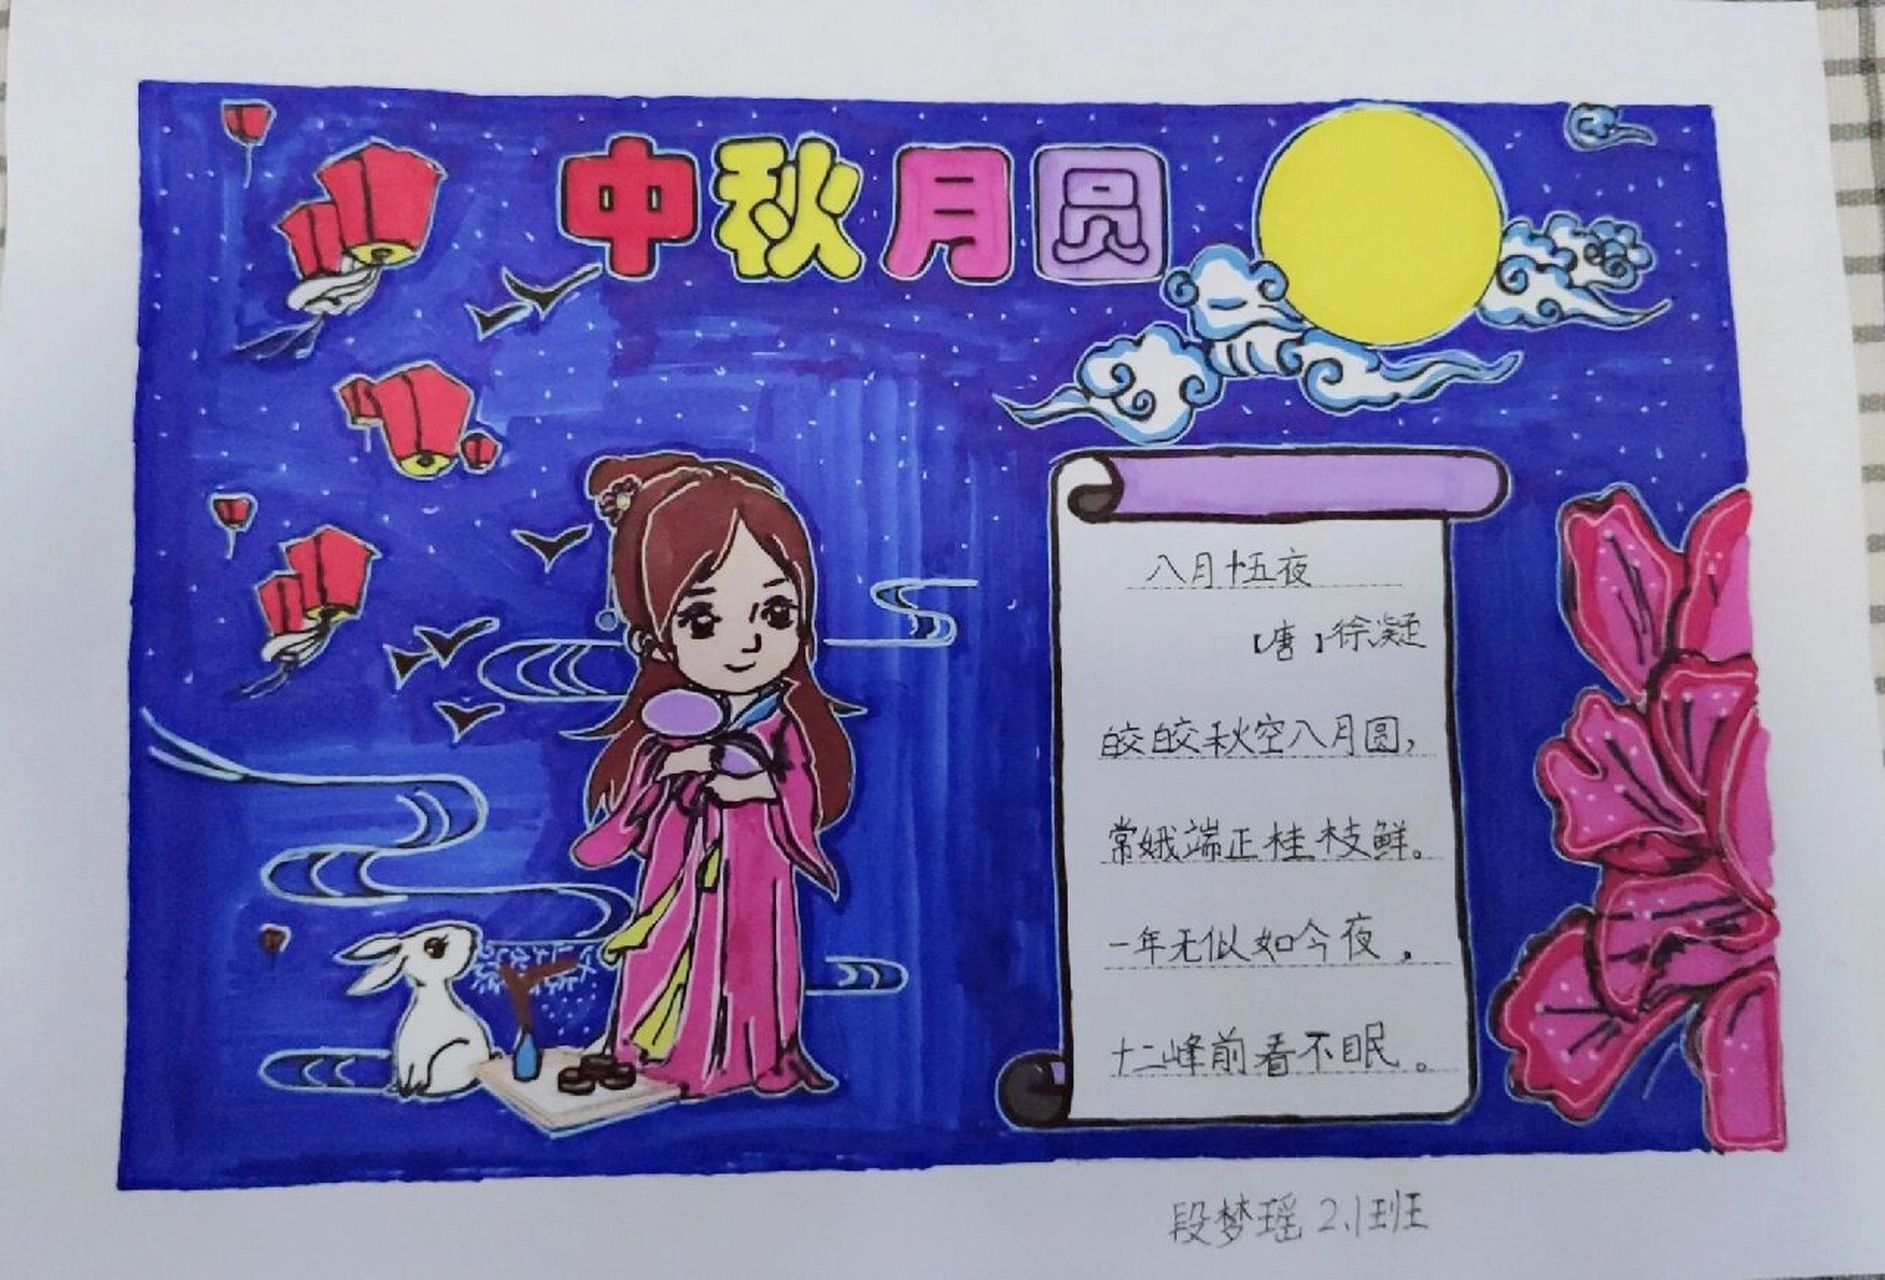 中秋月圆
八月十五夜
【唐】徐凝
皎皎秋空八月圆，
常娥端正桂枝鲜。
一年无似如今夜，
十二峰前看不眠。
段梦瑶 2.1班